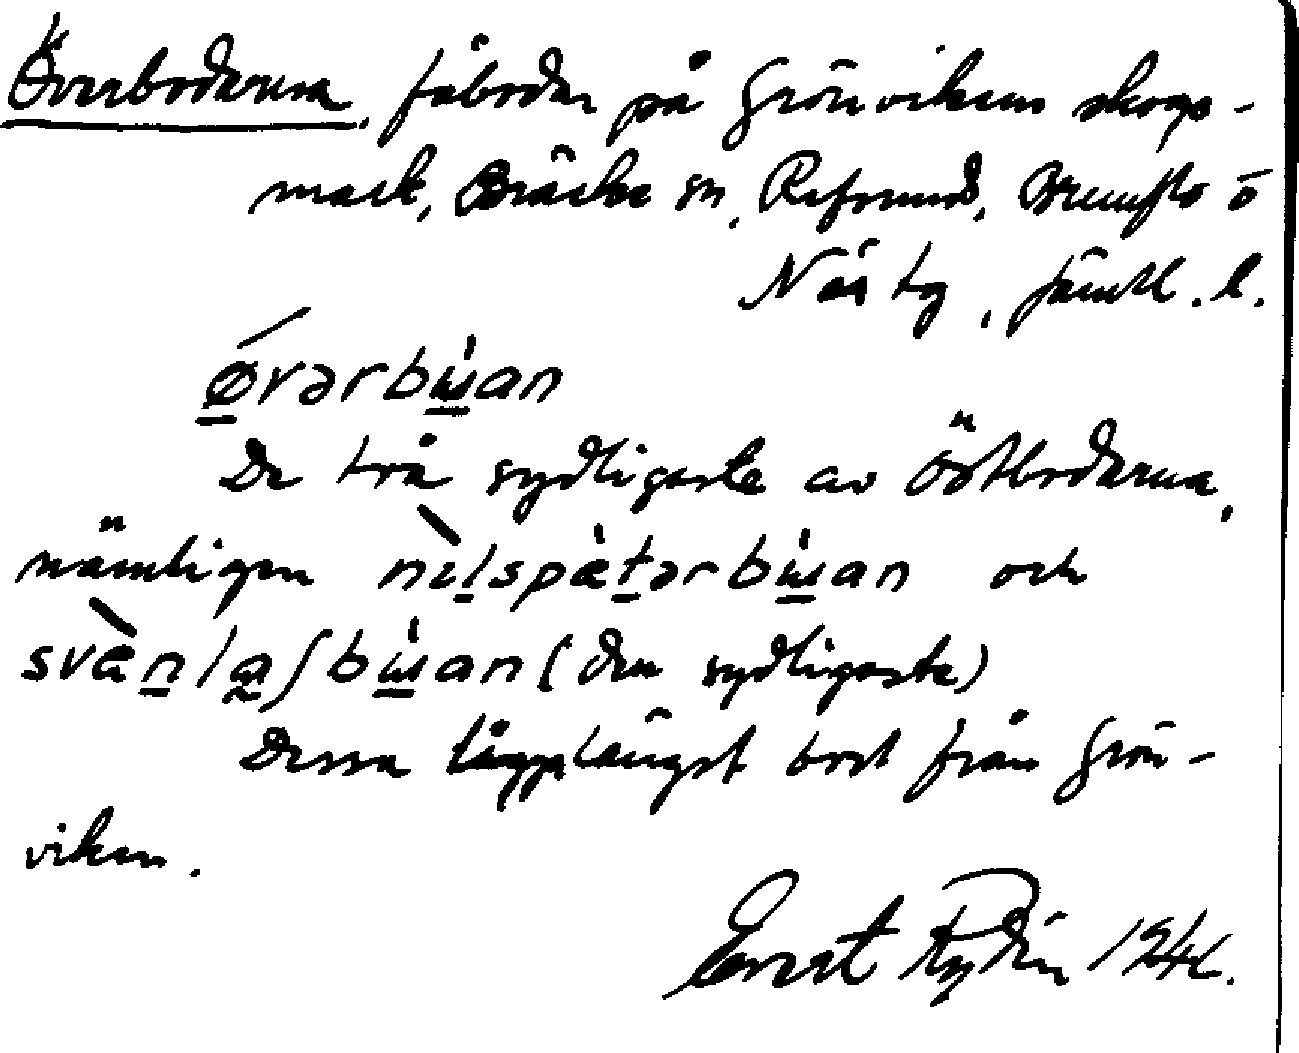 Överbodarna, fäbodar på Grönvikens skogs-
mark, Bräcke sn, Refsunds, Brunflo o
Näs tg, Jämtl. l.
øvərbɯan
De två sydligaste av Östbodarna,
nämligen nilspætərbɯan och
svænlaʃbɯan (den sydligaste)
Dessa lågo längst bort från Grön-
viken.
Ernst Rydén 1946.